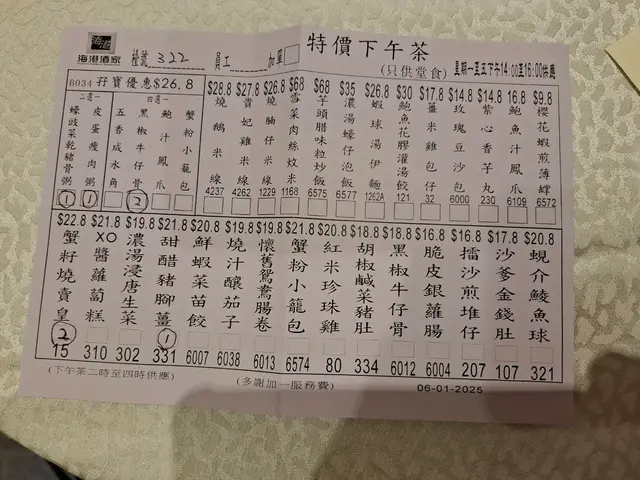 海港酒家
檯號 322 員工 加單
特價下午茶
(只供堂食)
星期一至五下午14:00至16:00供應
B034 孖寶優惠$26.8
二選一
四選一
蠔豉菜乾豬骨粥 ①
皮蛋瘦肉粥 ①
五香咸水角
黑椒牛仔骨 ②
鮑汁鳳爪
蟹粉小籠包
$28.8 燒鵝米線 4237
$27.8 貴妃雞米線 4262
$26.8 燒腩仔米線 1229
$68 雪菜肉絲炆米 1168
$68 芋頭腊味粒炒飯 6575
$35 濃湯蠔仔泡飯 6577
$26.8 蝦球湯伊麵 1262A
$30 鮑魚花膠灌湯餃 121
$17.8 薑米雞包仔 32
$14.8 玫瑰豆沙包 6000
$14.8 紫心香芋丸 230
16.8 鮑魚汁鳳爪 6109
$9.8 櫻花蝦煎薄罉 6572
$22.8 蟹籽燒賣皇 ② 15
$21.8 XO醬蘿蔔糕 310
$19.8 濃湯浸唐生菜 302
$21.8 甜醋豬腳薑 ① 331
$20.8 鮮蝦菜苗餃 6007
$19.8 燒汁釀茄子 6038
$19.8 懷舊鴛鴦腸卷 6013
$21.8 蟹粉小籠包 6574
$20.8 紅米珍珠雞 80
$18.8 胡椒鹹菜豬肚 334
$19.8 黑椒牛仔骨 6012
$16.8 脆皮銀蘿腸 6004
$16.8 擂沙煎堆仔 207
$17.8 沙爹金錢肚 107
$20.8 蜆介鯪魚球 321
(下午茶二時至四時供應)
(多謝加一服務費)
06-01-2025